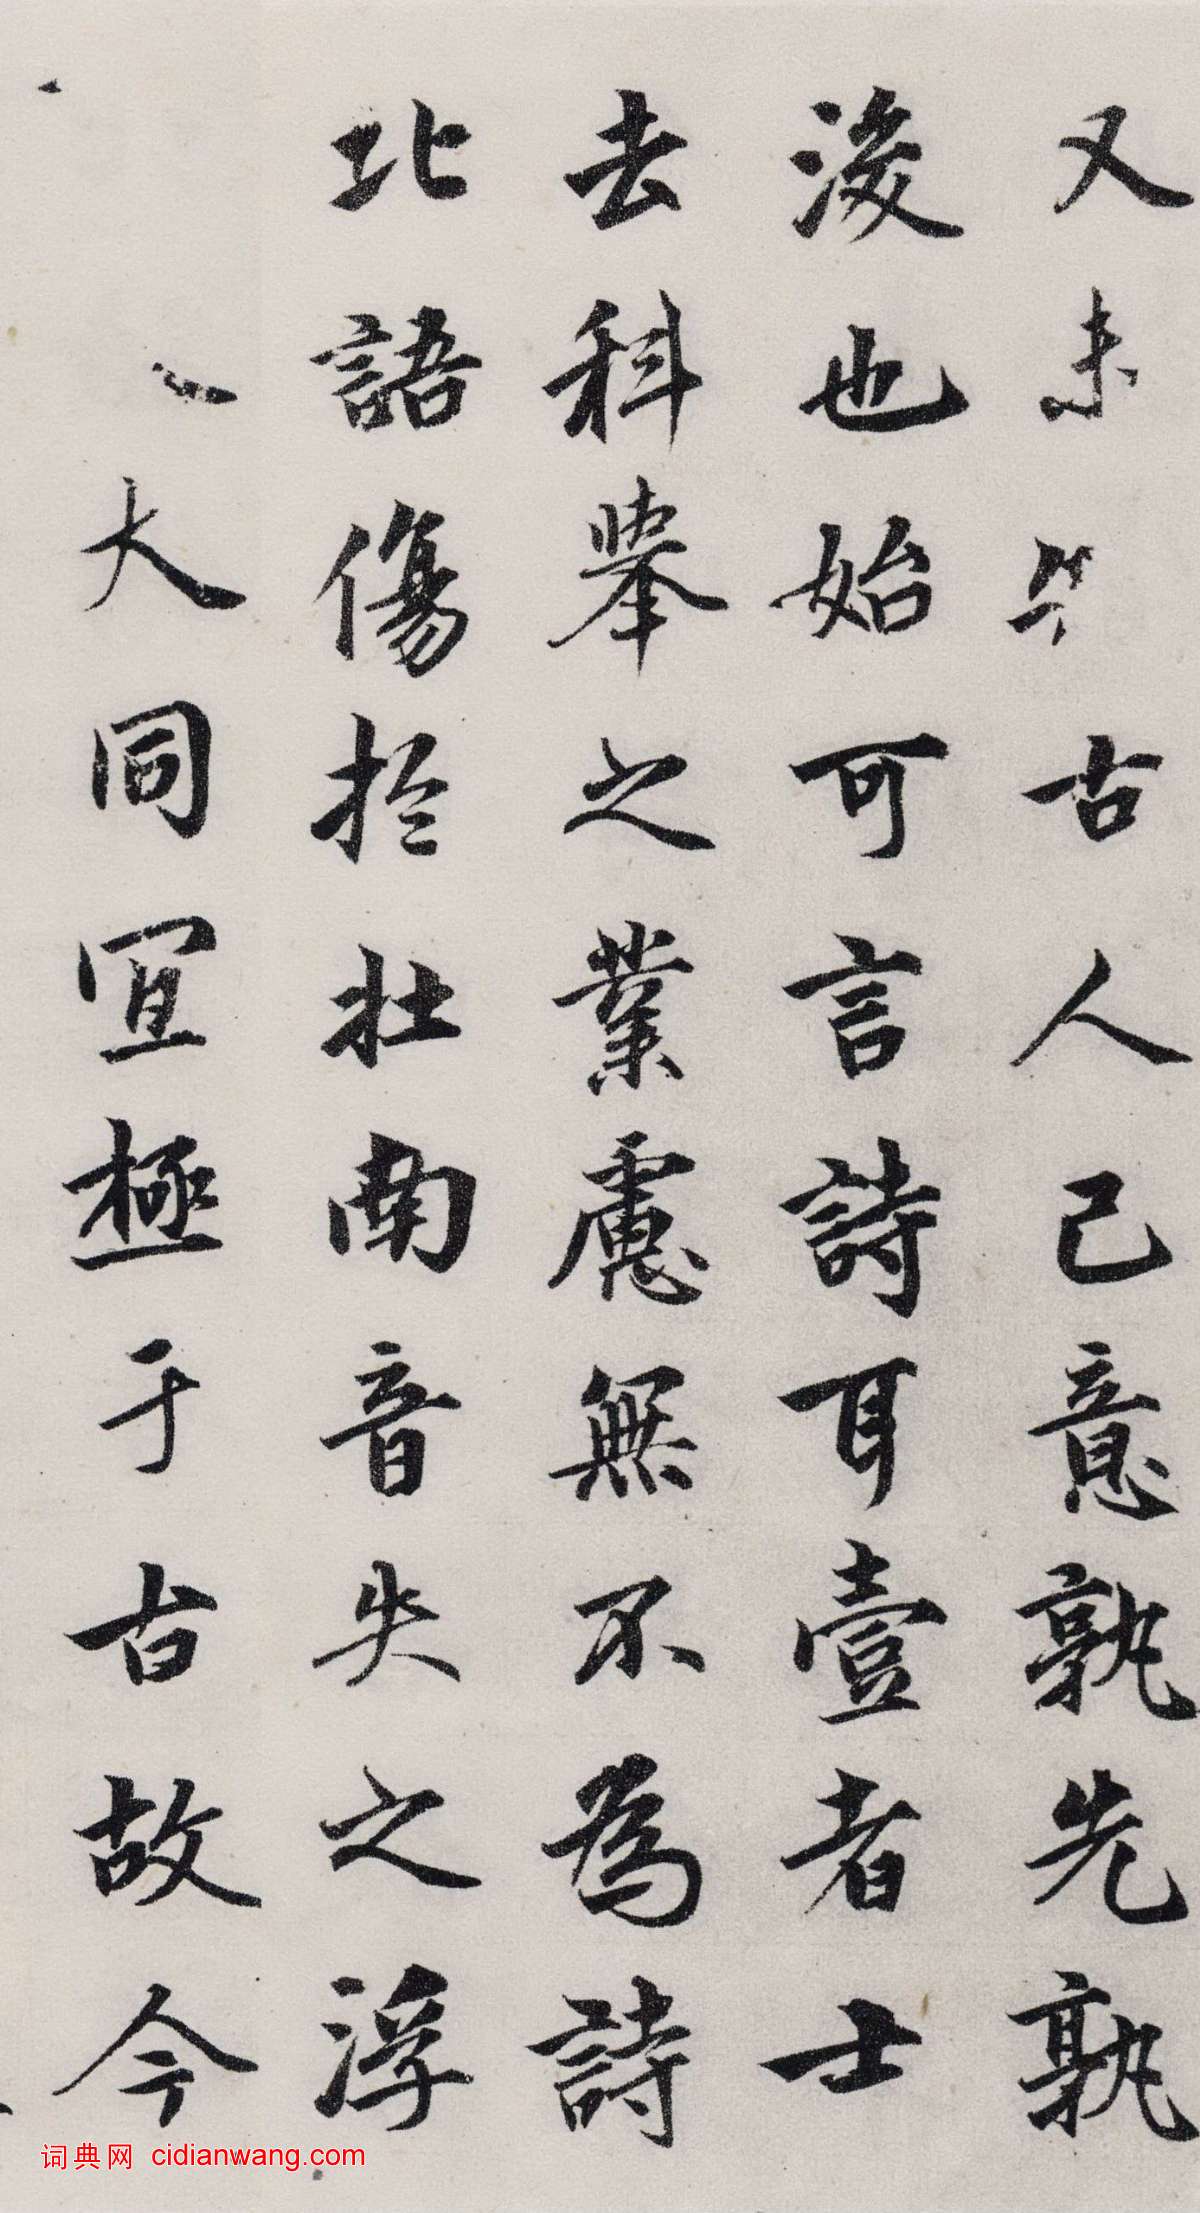 又未古人己意孰先孰
後也始可言詩耳壹者士
去科舉之業慮無不為詩
北語傷於壯南音失之浮
大同冝極于古故今
词典网 cidianwang.com